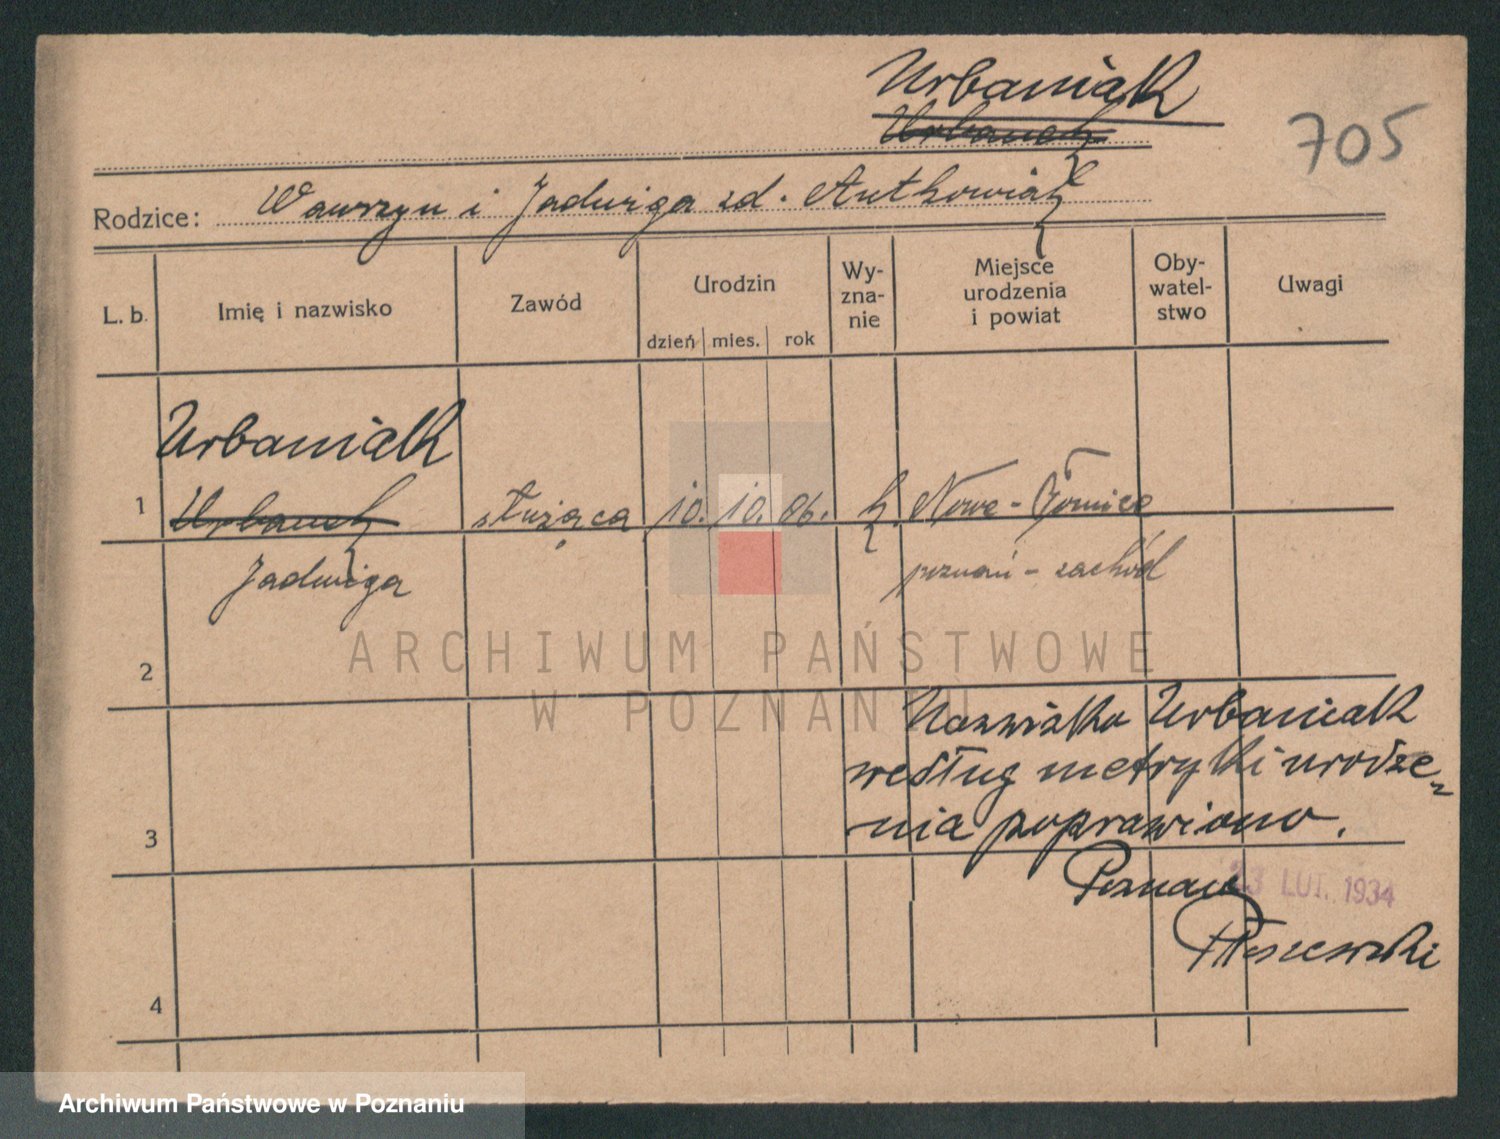 Urbaniak
Urbanek
705
Rodzice: Wawrzyn i Jadwiga zd. Antkowiak
L. b. Imię i nazwisko Zawód Urodzin Wy-zna-nie Miejsce urodzenia i powiat Oby-watel-stwo Uwagi
dzień mies. rok
Urbaniak
1 Urbanek służąca 10. 10. 06. k. Nowe-Górnice
Jadwiga poznań - zachód
2
ARCHIWUM PAŃSTWOWE
W POZNANIU
Nazwisko Urbaniak
według metryki urodze-
3 nia poprawiono.
Poznań 23 LUT. 1934
4
Archiwum Państwowe w Poznaniu